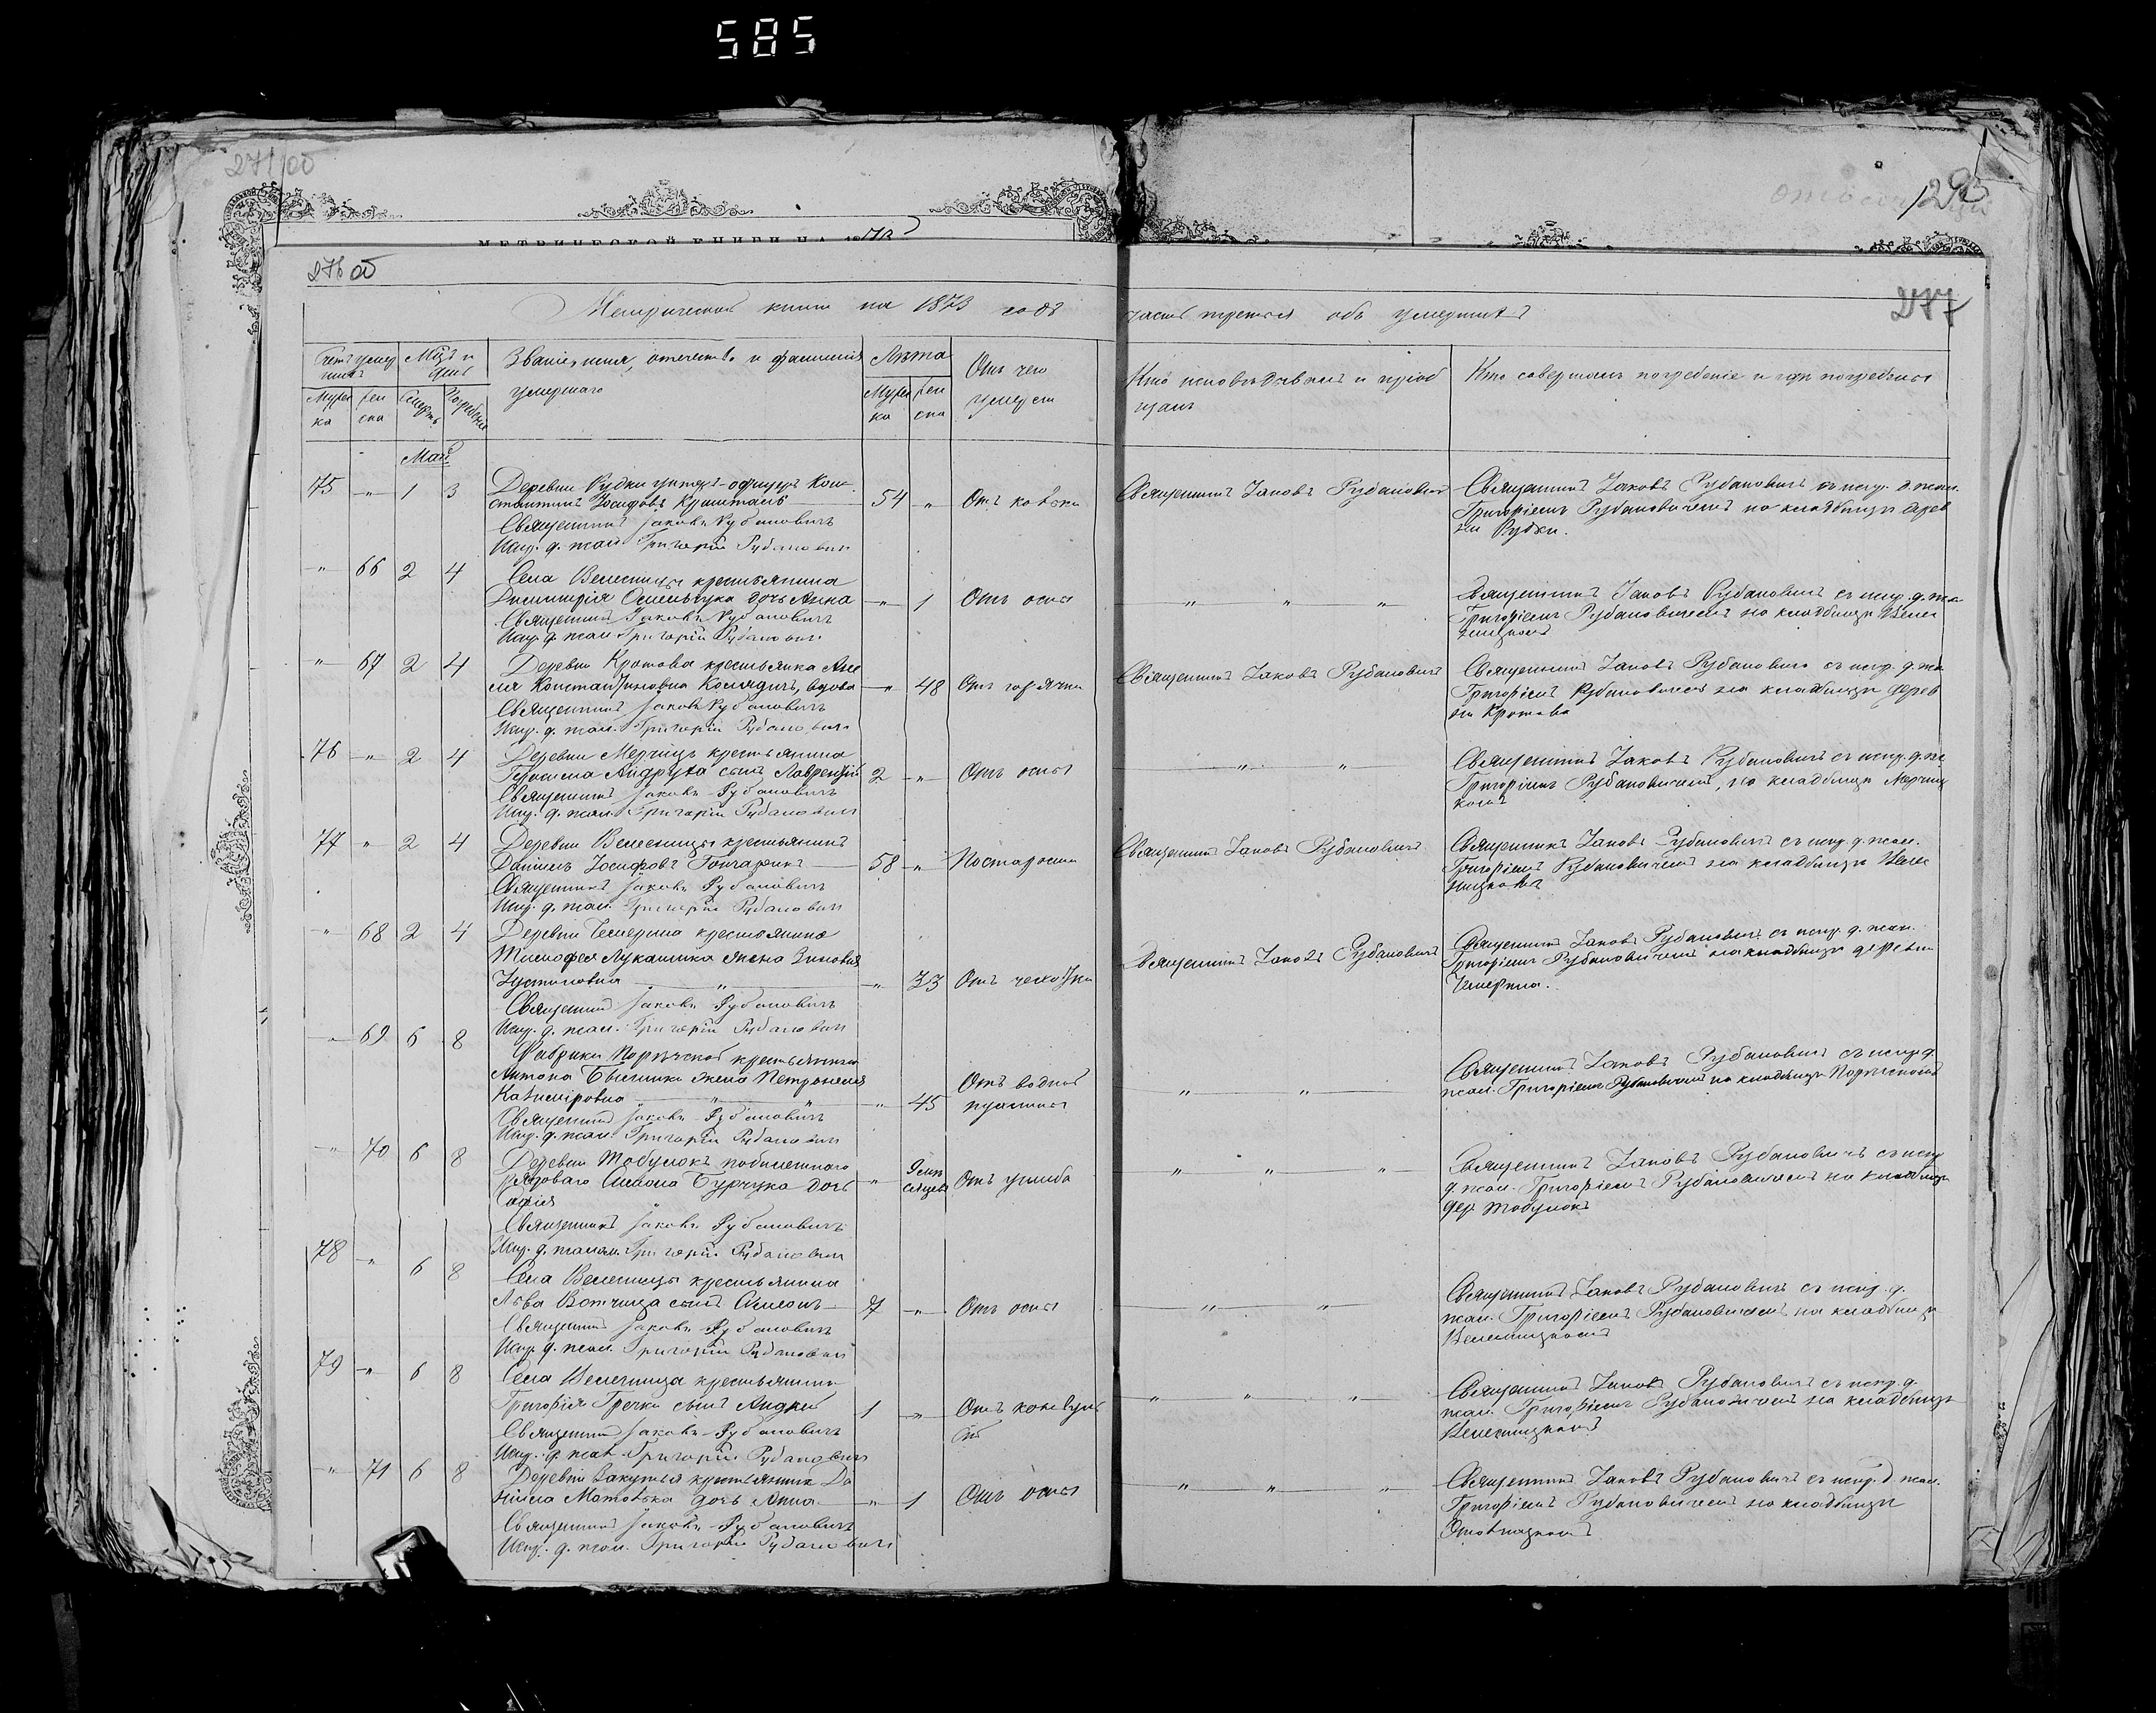 585
271 об
293
МЕТРИЧЕСКОЙ КНИГИ НА 1873
276 об
277
Метрической книги на 1873 годъ часть третья объ умершихъ
Счетъ умер
шихъ
Мѣсяцъ и
день
Званіе, имя, отечество и фамилія
умершаго
Лѣта
Отъ чего
умеръ
Кто исповѣдывалъ и пріоб
щалъ
Кто совершалъ погребеніе и гдѣ погребены
Муж
ска
Жен
ска
Смерть
Погребенія
Муж
ка
Жен
ска
Май
75 " 1 3 Деревни Рудки унтеръ-офицеръ Кон
стантинъ Іосифовъ 54 " Отъ
Священникъ Іаковъ Рубановичъ
Исп. д. псал. Григорій Рубановичъ
Священникъ Іаковъ Рубановичъ
Священникъ Іаковъ Рубановичъ съ испр. д. псал.
Григоріемъ Рубановичемъ на кладбищѣ дерев
ни Рудки.
" 66 2 4 Села Велесницы крестьянина
Димитрія дочь Анна " 1 Отъ оспы
Священникъ Іаковъ Рубановичъ
Исп. д. псал. Григорій Рубановичъ
" " "
Священникъ Іаковъ Рубановичъ съ испр. д. пса
Григоріемъ Рубановичемъ на кладбищѣ Велес
ницкомъ
" 67 2 4 Деревни Кротова крестьянка
Константиновна Колядичъ, вдова " 48 Отъ горячки
Священникъ Іаковъ Рубановичъ
Исп. д. псал. Григорій Рубановичъ
Священникъ Іаковъ Рубановичъ
Священникъ Іаковъ Рубановичъ съ испр. д. пса
Григоріемъ Рубановичемъ на кладбищѣ дерев
ни Кротова
76 " 2 4 Деревни Мерчицъ крестьянина
Герасима сынъ Лаврентій 2 " Отъ оспы
Священникъ Іаковъ Рубановичъ
Исп. д. псал. Григорій Рубановичъ
" "
Священникъ Іаковъ Рубановичъ съ испр. д. пс
Григоріемъ Рубановичемъ, на кладбищѣ Мерчиц
комъ
77 " 2 4 Деревни Велесницы крестьянинъ
Даніилъ Іосифовъ Гончарикъ 58 "
Священникъ Іаковъ Рубановичъ
Исп. д. псал. Григорій Рубановичъ
Священникъ Іаковъ Рубановичъ
Священникъ Іаковъ Рубановичъ съ испр. д. псал.
Григоріемъ Рубановичемъ на кладбищѣ Велес
ницкомъ
" 68 2 4 Деревни Чемерина крестьянина
Тимофея Лукашика жена Зиновія
Іустиновна " " 33 Отъ чехотки
Священникъ Іаковъ Рубановичъ
Исп. д. псал. Григорій Рубановичъ
Священникъ Іаковъ Рубановичъ
Священникъ Іаковъ Рубановичъ съ испр. д. псал.
Григоріемъ Рубановичемъ на кладбищѣ деревни
Чемерина.
" 69 6 8 Фабрики Порѣчской крестьянина
Антона жена Петронелія
Казиміровна " " " 45 Отъ водной
пухлины
Священникъ Іаковъ Рубановичъ
Исп. д. псал. Григорій Рубановичъ
" "
Священникъ Іаковъ Рубановичъ съ испр д.
псал. Григоріемъ Рубановичемъ на кладбищѣ Порѣчскомъ
" 70 6 8 Деревни Тобулокъ побилетнаго
рядоваго Бурчука дочь " 9 мѣ
сяцевъ
Софія
Священникъ Іаковъ Рубановичъ
Исп. д. псалом. Григорій Рубановичъ
" " "
Священникъ Іаковъ Рубановичъ съ испр
д. псал. Григоріемъ Рубановичемъ на кладбищѣ
дер. Тобулокъ
78 " 6 8 Села Велесницы крестьянина
Льва сынъ Симеонъ 7 " Отъ оспы
Священникъ Іаковъ Рубановичъ
Исп. д. псал. Григорій Рубановичъ
" "
Священникъ Іаковъ Рубановичъ съ испр. д.
псал. Григоріемъ Рубановичемъ на кладбищѣ
Велесницкомъ
79 " 6 8 Села Велесница крестьянина
Григорія Гречки сынъ Андрей 1 " Отъ
Священникъ Іаковъ Рубановичъ
Исп. д. псал. Григорій Рубановичъ
" " "
Священникъ Іаковъ Рубановичъ съ испр. д.
псал. Григоріемъ Рубановичемъ на кладбищѣ
Велесницкомъ
" 71 6 8 Деревни крестьянина Да
ніила дочь Анна " 1 Отъ оспы
Священникъ Іаковъ Рубановичъ
Исп. д. псал. Григорій Рубановичъ
" " "
Священникъ Іаковъ Рубановичъ съ испр. д. псал.
Григоріемъ Рубановичемъ на кладбищѣ